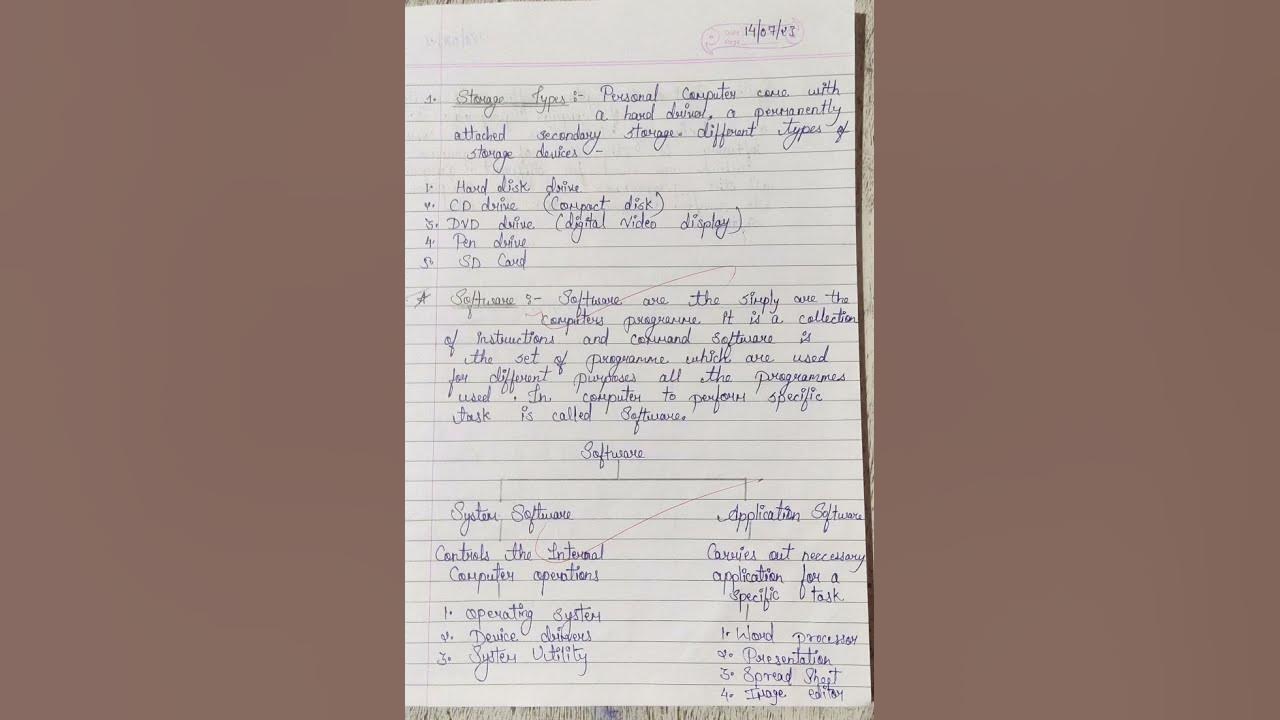 14/07/23
1. Storage Types :- Personal Computer come with
a hard drive. a permanently
attached secondary storage. different types of
storage devices -
1. Hard disk drive
2. CD drive (Compact disk)
3. DVD drive (digital video display)
4. Pen drive
5. SD Card
Software :- Software are the simply are the
Computers programme it is a collection
of instructions and command software is
the set of programme which are used
for different purposes all the programmes
used . In computer to perform specific
task is called Software.
Software
System Software Application Software
Controls the Internal Carries out neccessary
Computer operations application for a
specific task
1. Operating System
2. Device drivers 1. Word processor
3. System Utility 2. Presentation
3. Spread Sheet
4. Image editor